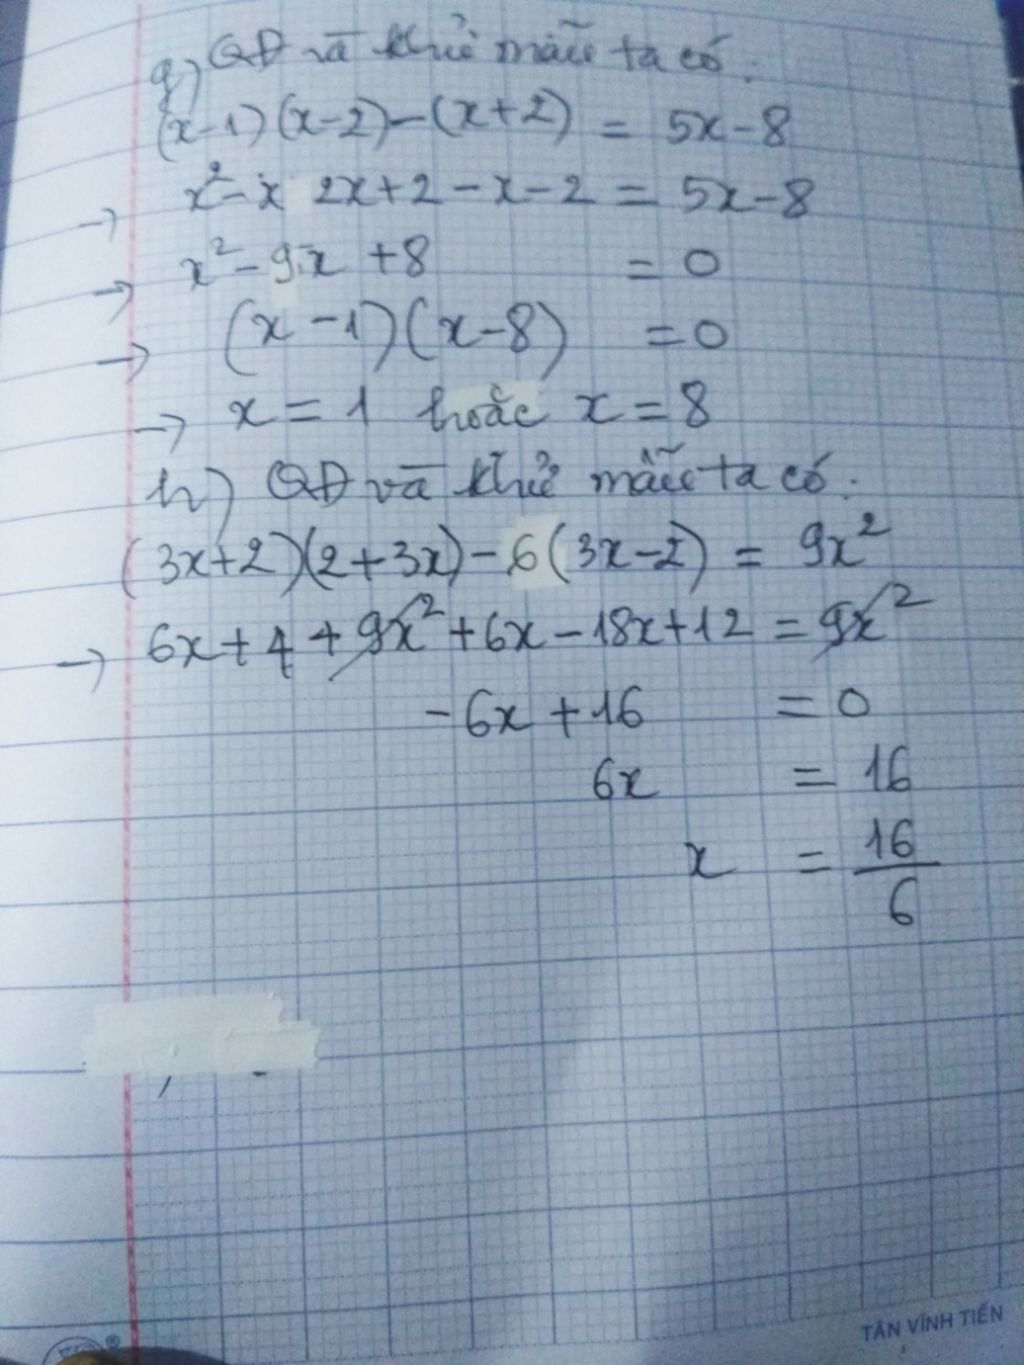 g) QĐ và khử mẫu ta có:
(x-1)(x-2)-(x+2) = 5x-8
→ x²-x 2x+2-x-2 = 5x-8
→ x²-9x+8 = 0
→ (x-1)(x-8) = 0
→ x = 1 hoặc x = 8
h) QĐ và khử mẫu ta có:
(3x+2)(2+3x)-6(3x-2) = 9x²
→ 6x+4+9x²+6x-18x+12 = 9x²
-6x+16 = 0
6x = 16
x = 16/6
TÂN VĨNH TIẾN